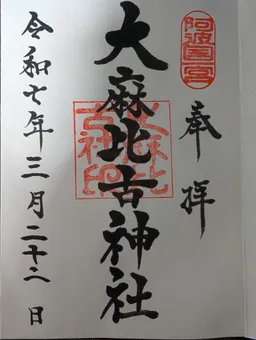 阿波國一宮
奉拝
大麻比古神社
大麻比古社印
令和七年三月二十二日